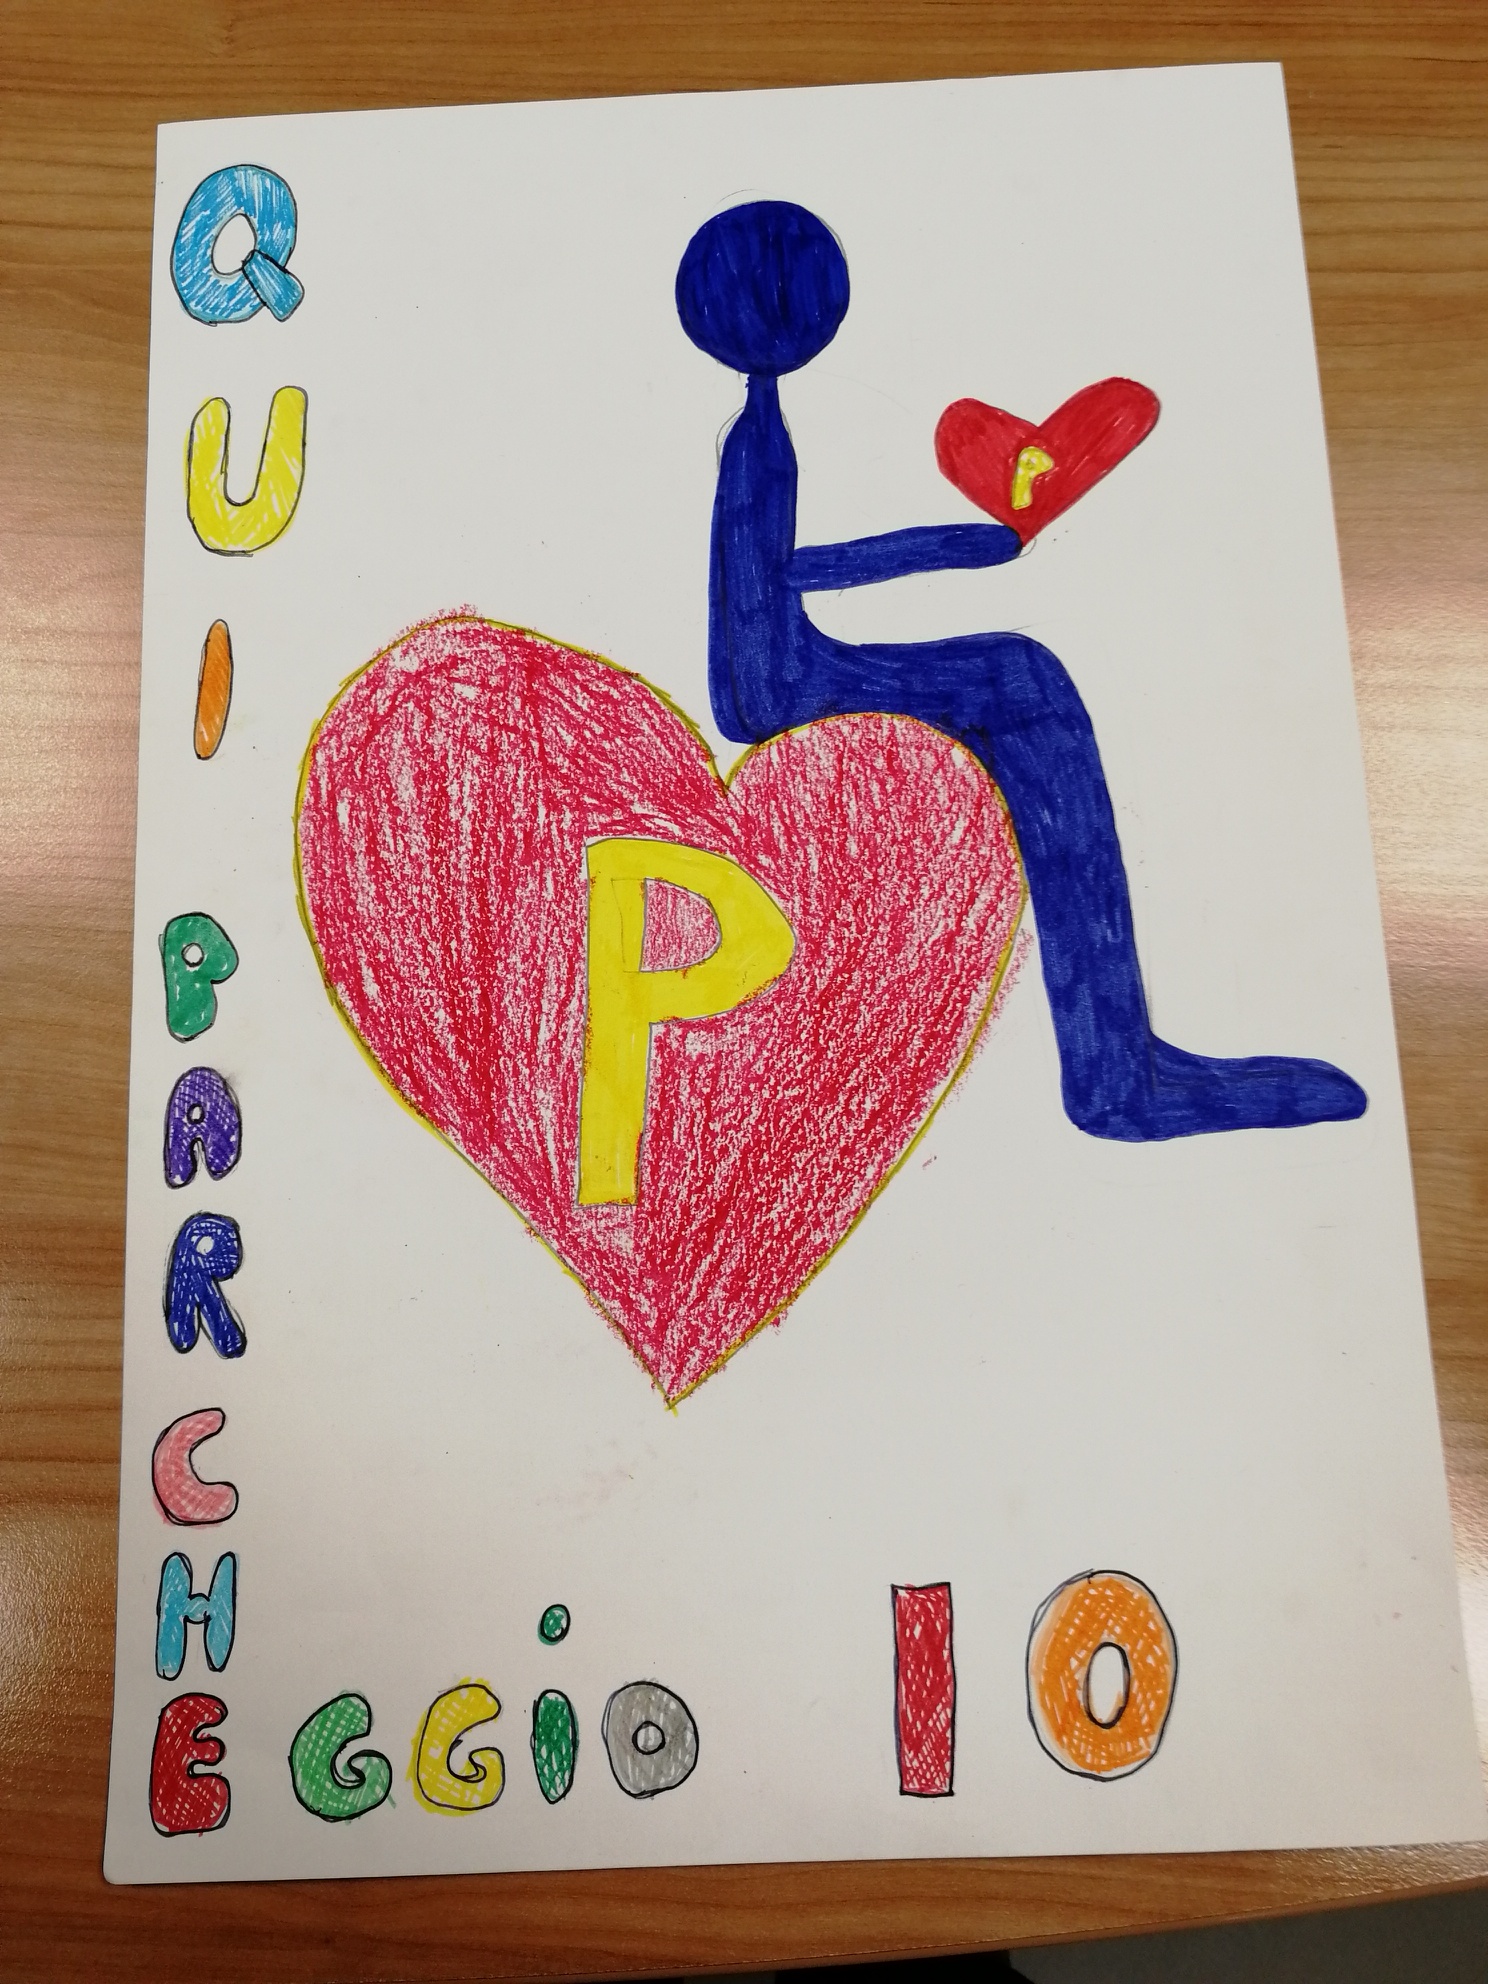 QUI
PARCHEGGiO IO
P
P